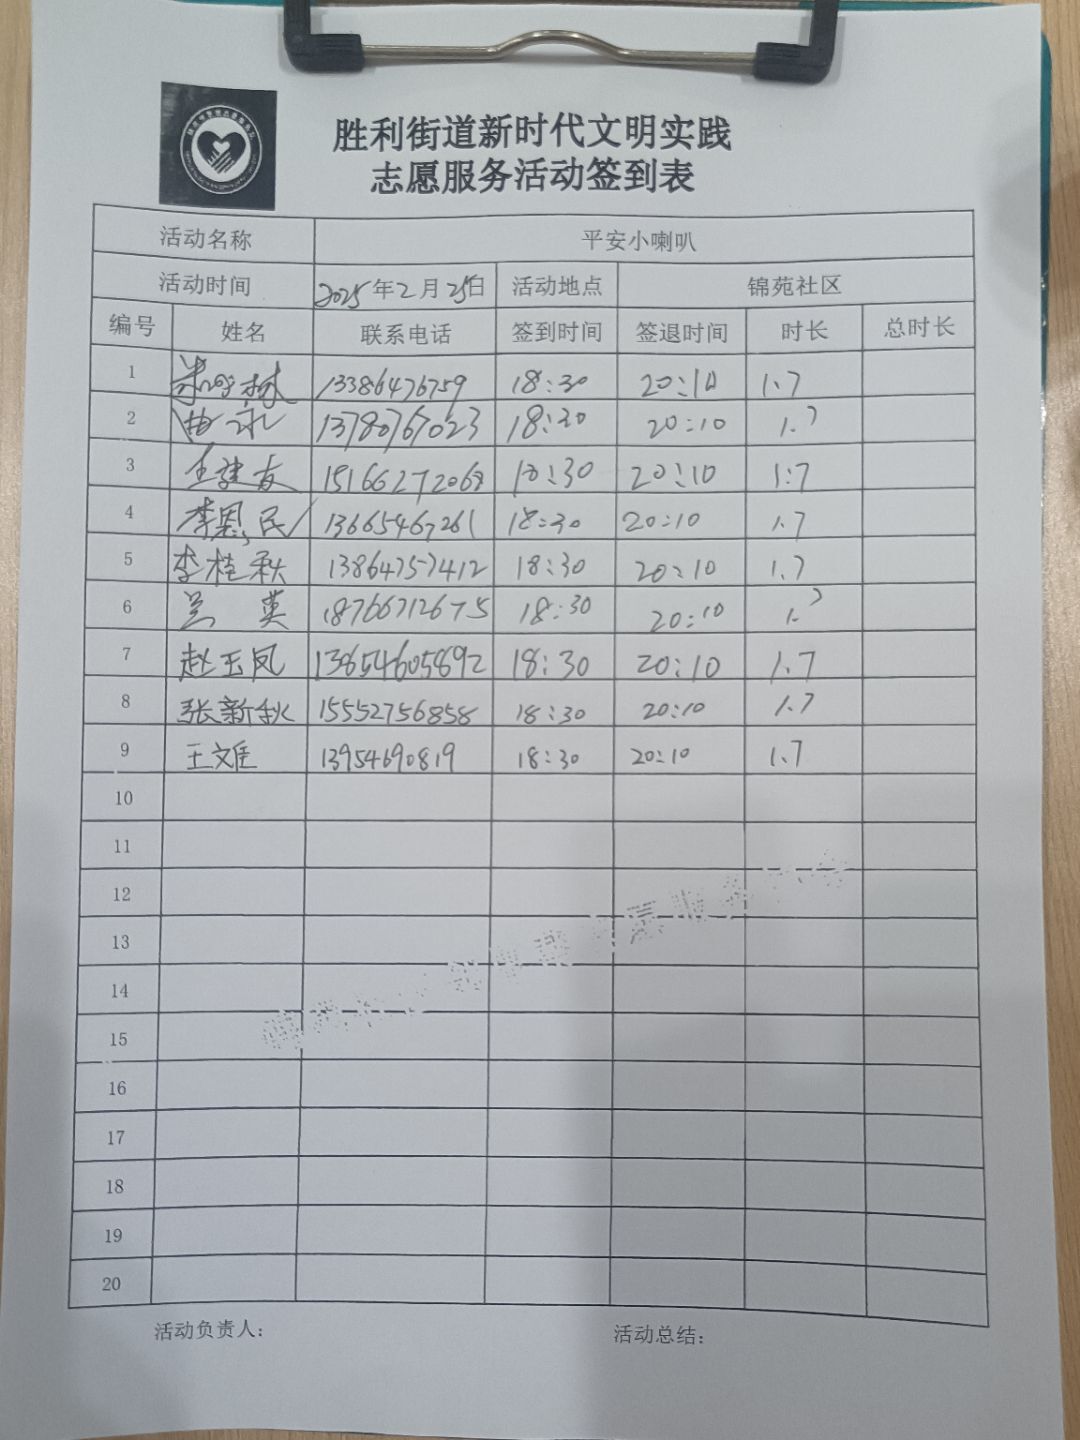 胜利街道新时代文明实践
志愿服务活动签到表
活动名称 平安小喇叭
活动时间 2025年2月25日 活动地点 锦苑社区
编号 姓名 联系电话 签到时间 签退时间 时长 总时长
1 13386476759 18:30 20:10 1.7
2 13780767023 18:30 20:10 1.7
3 王建友 15166272068 18:30 20:10 1:7
4 李恩民 13665467261 18:30 20:10 1.7
5 李桂秋 13864757412 18:30 20:10 1.7
6 兰英 18766712675 18:30 20:10 1.7
7 赵玉凤 13854605892 18:30 20:10 1.7
8 张新秋 15552756858 18:30 20:10 1.7
9 王文 13954690819 18:30 20:10 1.7
10
11
12
13
14
15
16
17
18
19
20
活动负责人: 活动总结: